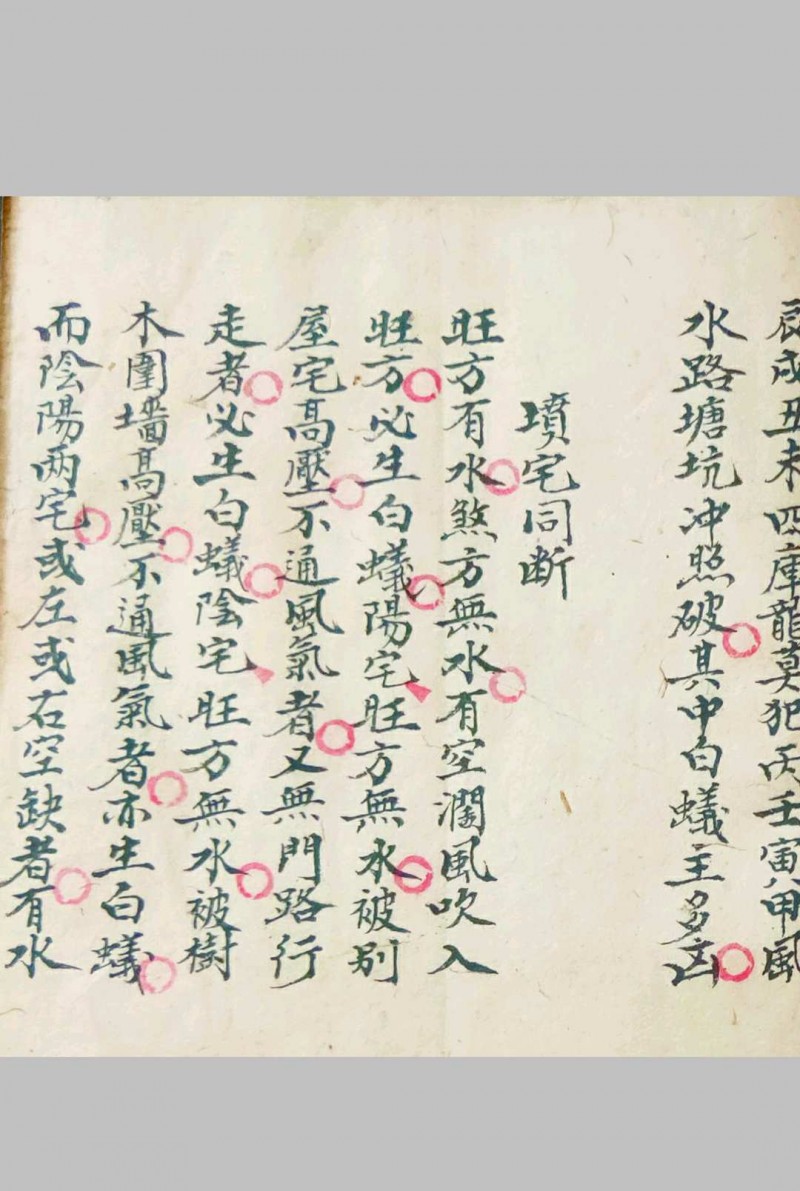 辰戌丑未四庫龍莫犯丙壬寅甲風
水路塘坑冲照破其中白蟻主多凶
墳宅同断
旺方有水煞方無水有空濶風吹入
旺方必生白蟻陽宅旺方無水被别
屋宅高壓不通風氣者又無門路行
走者必生白蟻陰宅旺方無水被樹
木圍墻高壓不通風氣者亦生白蟻
而陰陽两宅或左或右空缺者有水